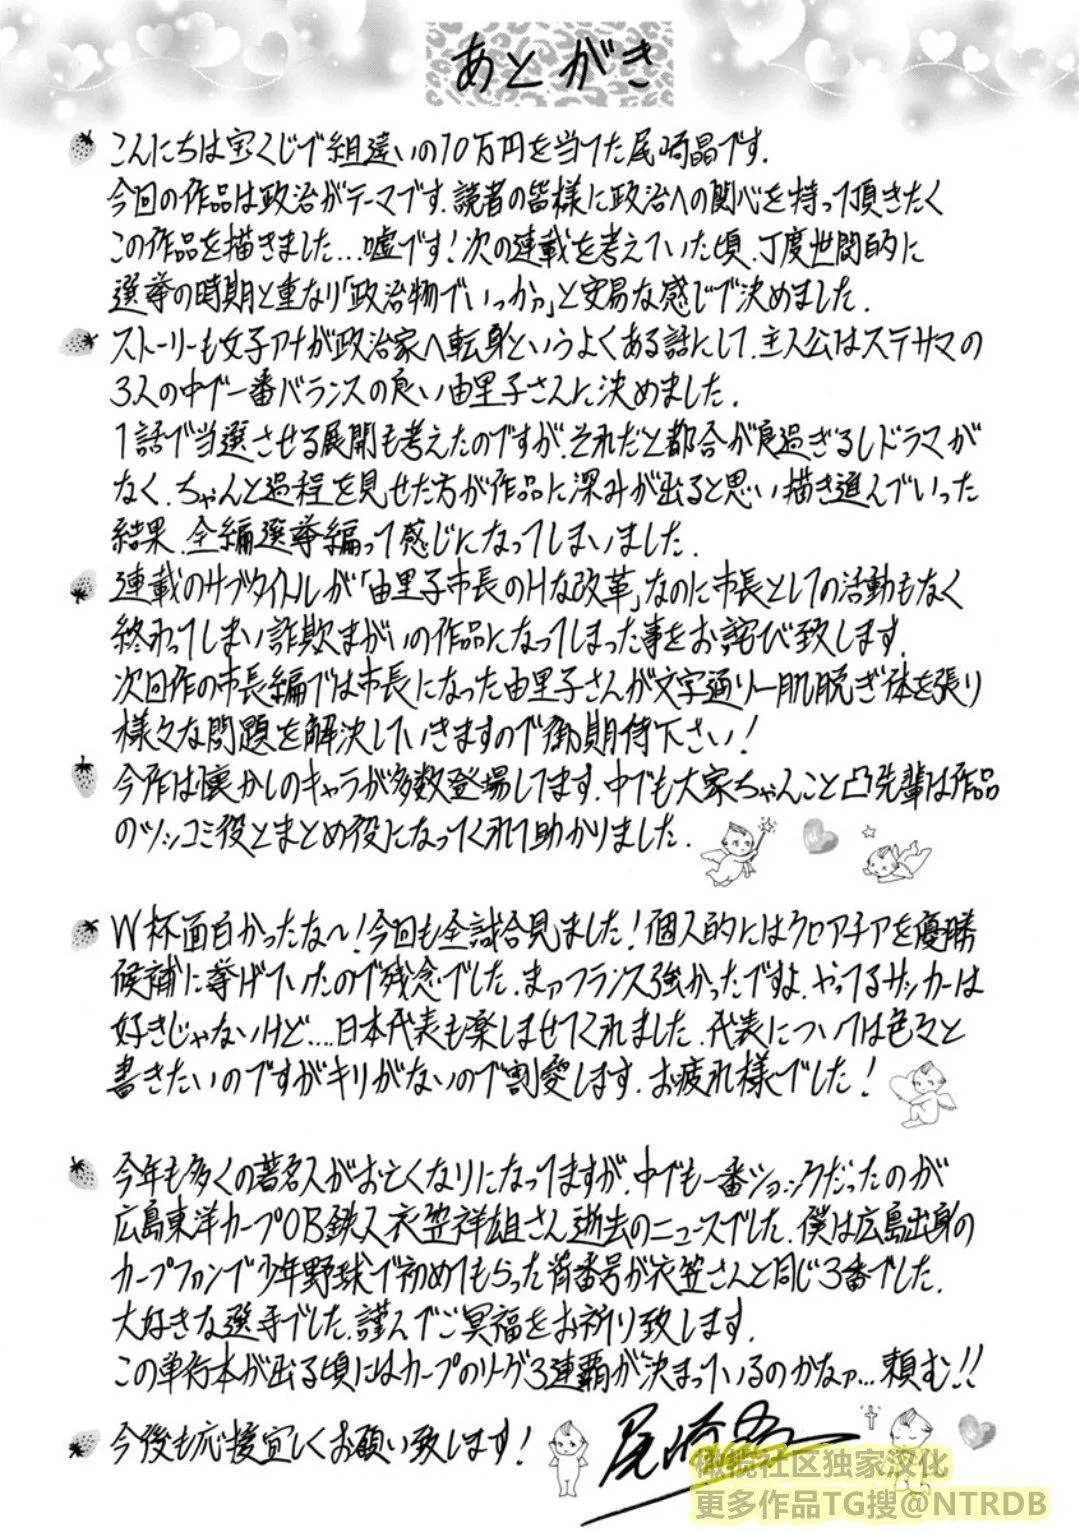 あとがき
こんにちは宝くじで組違いの10万円を当てた尾崎晶です.
今回の作品は政治がテーマです.読者の皆様に政治への関心を持って頂きたく
この作品を描きました...嘘です!次の連載を考えていた頃、丁度世間的に
選挙の時期と重なり「政治物でいっか」と安易な感じで決めました.
ストーリーも女子アナが政治家へ転身というよくある話にして、主人公はステサマの
3人の中で一番バランスの良い由里子さんに決めました.
1話で当選させる展開も考えたのですが、それだと都合が良過ぎるしドラマが
なく、ちゃんと過程を見せた方が作品に深みが出ると思い描き進んでいった
結果、全編選挙編って感じになってしまいました.
連載のサブタイトルが「由里子市長のHな改革」なのに市長としての活動もなく
終わってしまい詐欺まがいの作品になってしまった事をお詫び致します.
次回作の市長編では市長になった由里子さんが文字通り一肌脱ぎ体を張り
様々な問題を解決していきますので御期待下さい!
今作は懐かしのキャラが多数登場してます.中でも大家ちゃんこと凸先輩は作品
のツッコミ役とまとめ役になってくれて助かりました.
W杯面白かったな〜!今回も全試合見ました!個人的にはクロアチアを優勝
候補に挙げていたので残念でした.まァフランス強かったですよ.やってるサッカーは
好きじゃないけど....日本代表も楽しませてくれました.代表については色々と
書きたいのですがキリがないので割愛します.お疲れ様でした!
今年も多くの著名人がお亡くなりになってますが、中でも一番ショックだったのが
広島東洋カープOB鉄人衣笠祥雄さん逝去のニュースでした.僕は広島出身の
カープファンで少年野球で初めてもらった背番号が衣笠さんと同じ3番でした.
大好きな選手でした.謹んでご冥福をお祈り致します.
この単行本が出る頃にはカープのリーグ3連覇が決まっているのかなァ...頼む!!
今後も応援宜しくお願い致します!
尾崎晶
橄榄社区独家汉化
更多作品TG搜@NTRDB